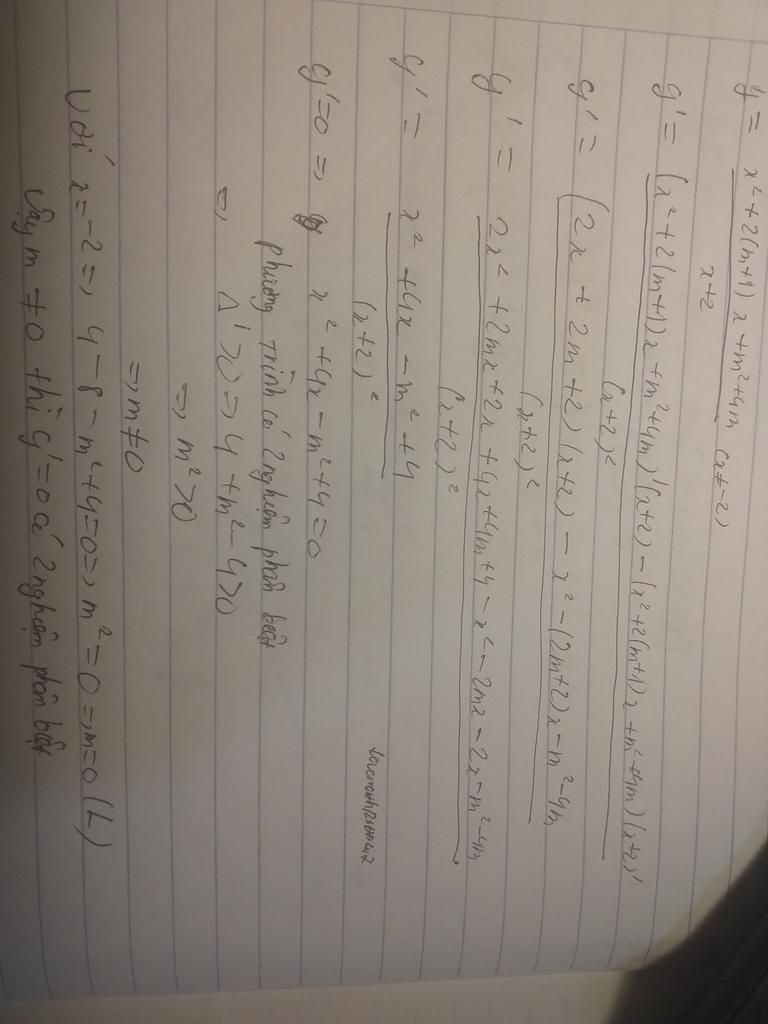 y = x²+2(m+1)x+m²+4m / x+2 (x≠-2)
y' = (x²+2(m+1)x+m²+4m)'(x+2) - (x²+2(m+1)x+m²+4m)(x+2)' / (x+2)²
y' = (2x+2m+2)(x+2) - x² - (2m+2)x - m² - 4m / (x+2)²
y' = 2x²+2mx+2x+4x+4m+4 - x² - 2mx - 2x - m² - 4m / (x+2)²
y' = x²+4x-m²+4 / (x+2)²
y'=0 => x²+4x-m²+4=0
phương trình có 2 nghiệm phân biệt
=> Δ'>0 => 4+m²-4>0
=> m²>0
=> m≠0
Với x=-2 => 4-8-m²+4=0 => m²=0 => m=0 (L)
Vậy m≠0 thì y'=0 có 2 nghiệm phân biệt